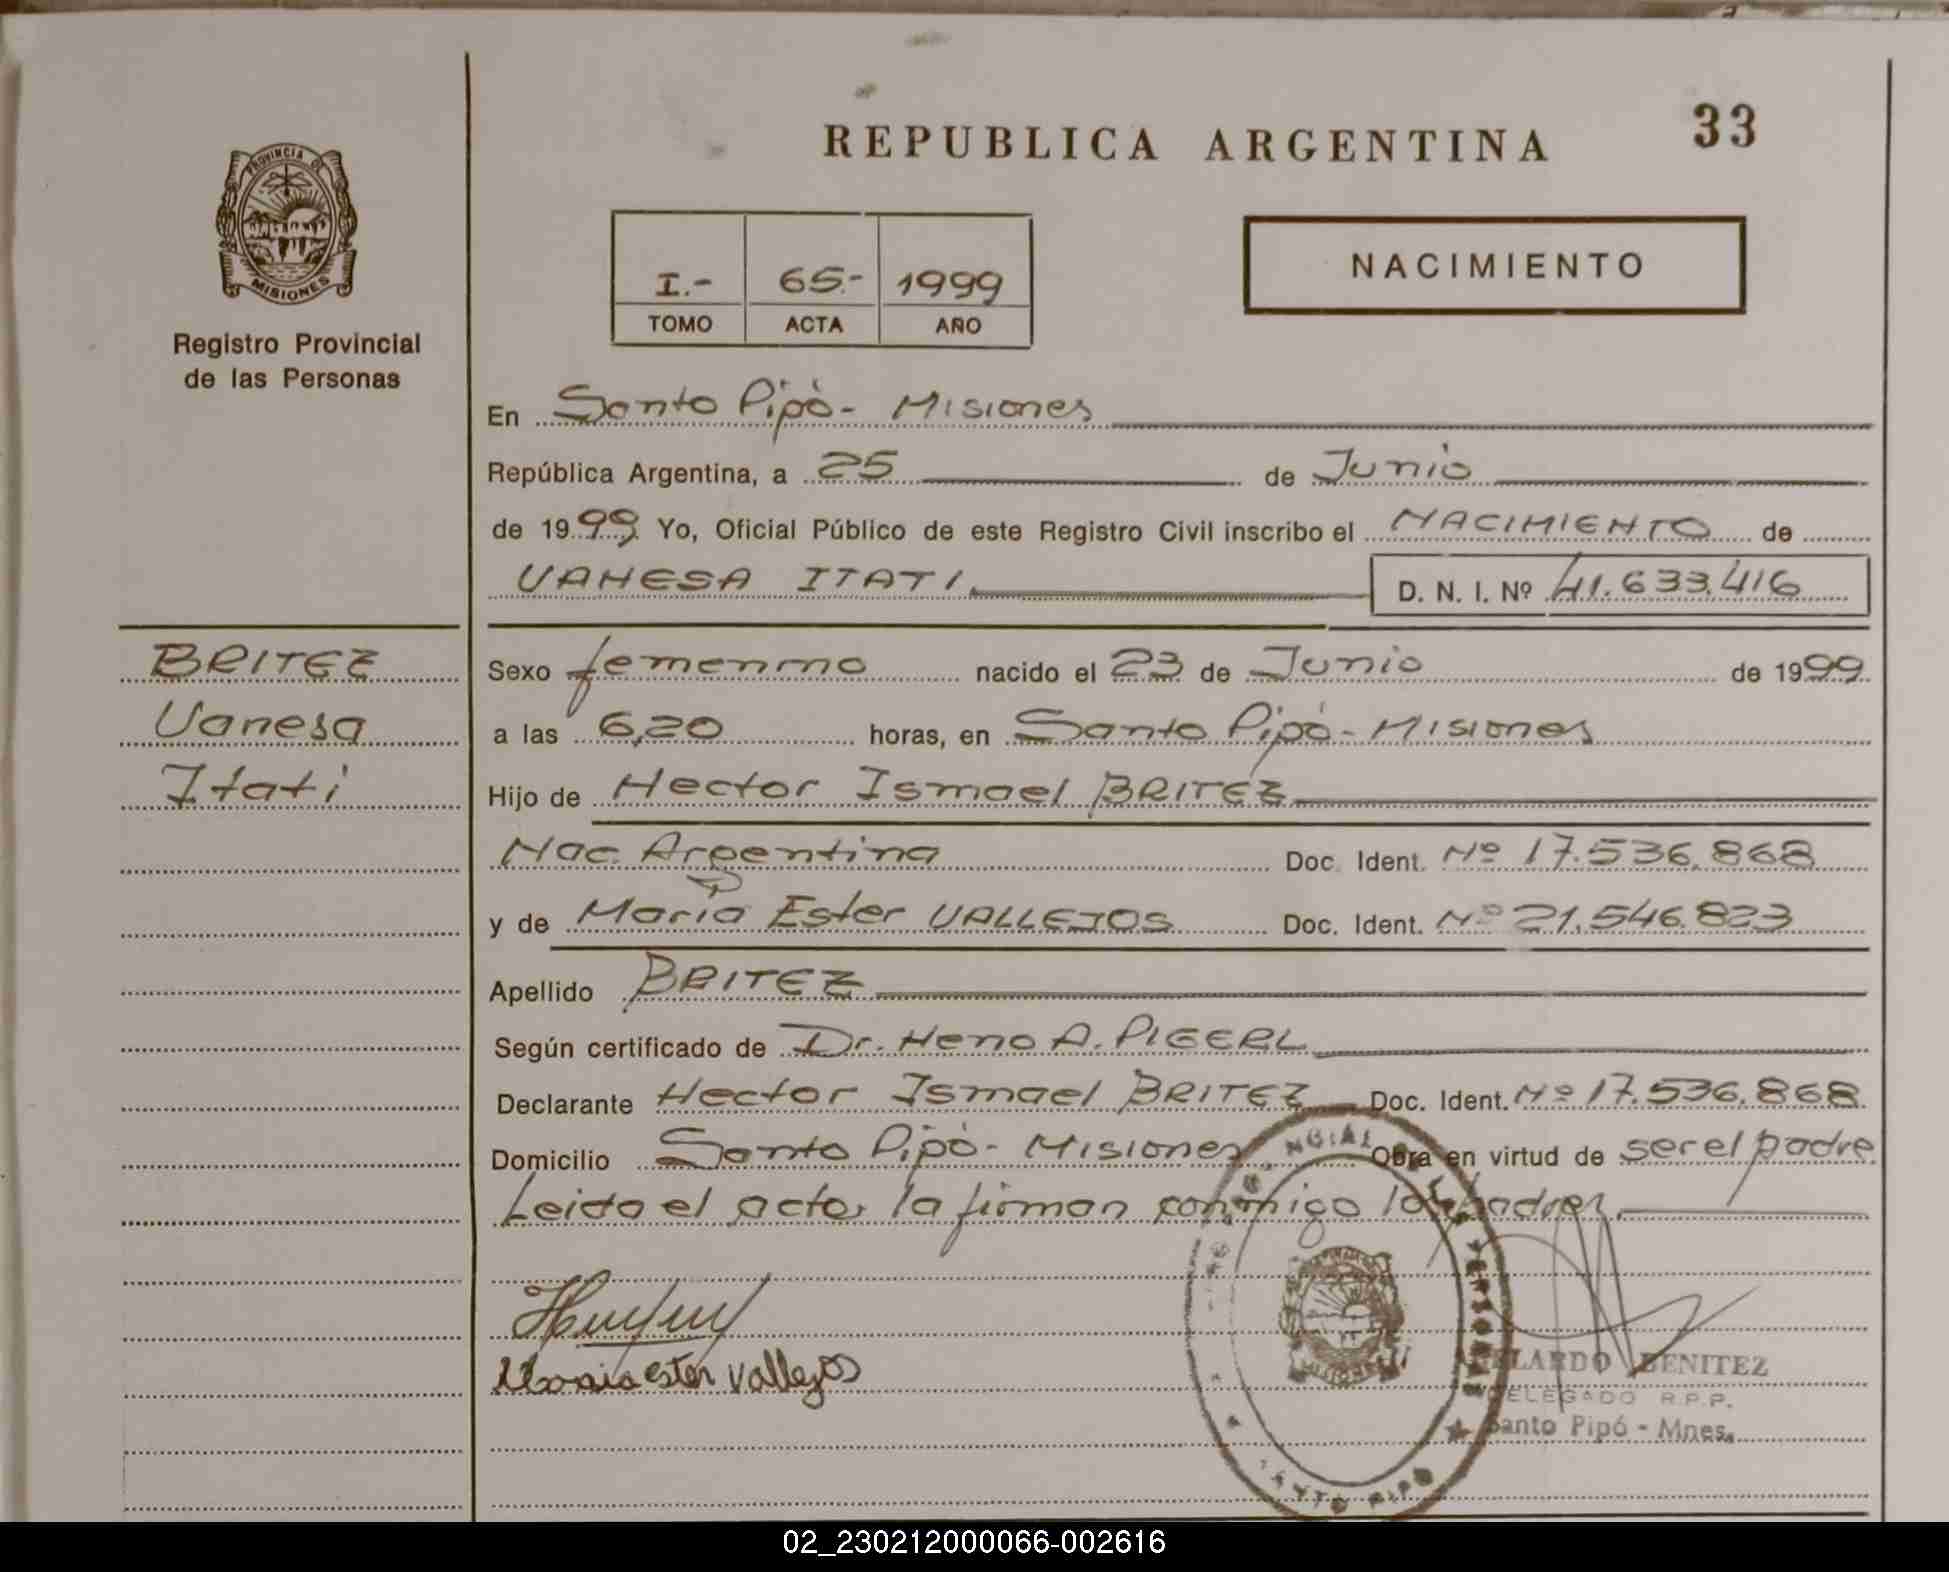 REPUBLICA ARGENTINA
33
PROVINCIA DE
MISIONES
Registro Provincial
de las Personas
I.- 65.- 1999
TOMO ACTA AÑO
NACIMIENTO
En Santo Pipó - Misiones
República Argentina, a 25 de Junio
de 1999 Yo, Oficial Público de este Registro Civil inscribo el NACIMIENTO de
VANESA ITATI D. N. I. Nº 41.633.416
BRITEZ
Vanesa
Itati
Sexo femenino nacido el 23 de Junio de 1999
a las 6,20 horas, en Santo Pipó - Misiones
Hijo de Hector Ismael BRITEZ
Nac. Argentina Doc. Ident. Nº 17.536.868
y de Maria Ester VALLEJOS Doc. Ident. Nº 21.546.823
Apellido BRITEZ
Según certificado de Dr. Heno A. PIGERL
Declarante Hector Ismael BRITEZ Doc. Ident. Nº 17.536.868
Domicilio Santo Pipó - Misiones Obra en virtud de ser el padre
Leida el acta, la firman conmigo los padres
Maria ester vallejos
ABELARDO BENITEZ
DELEGADO R.P.P.
Santo Pipó - Mnes.
PERSONAS
SANTO PIPO
MISIONES
02_230212000066-002616